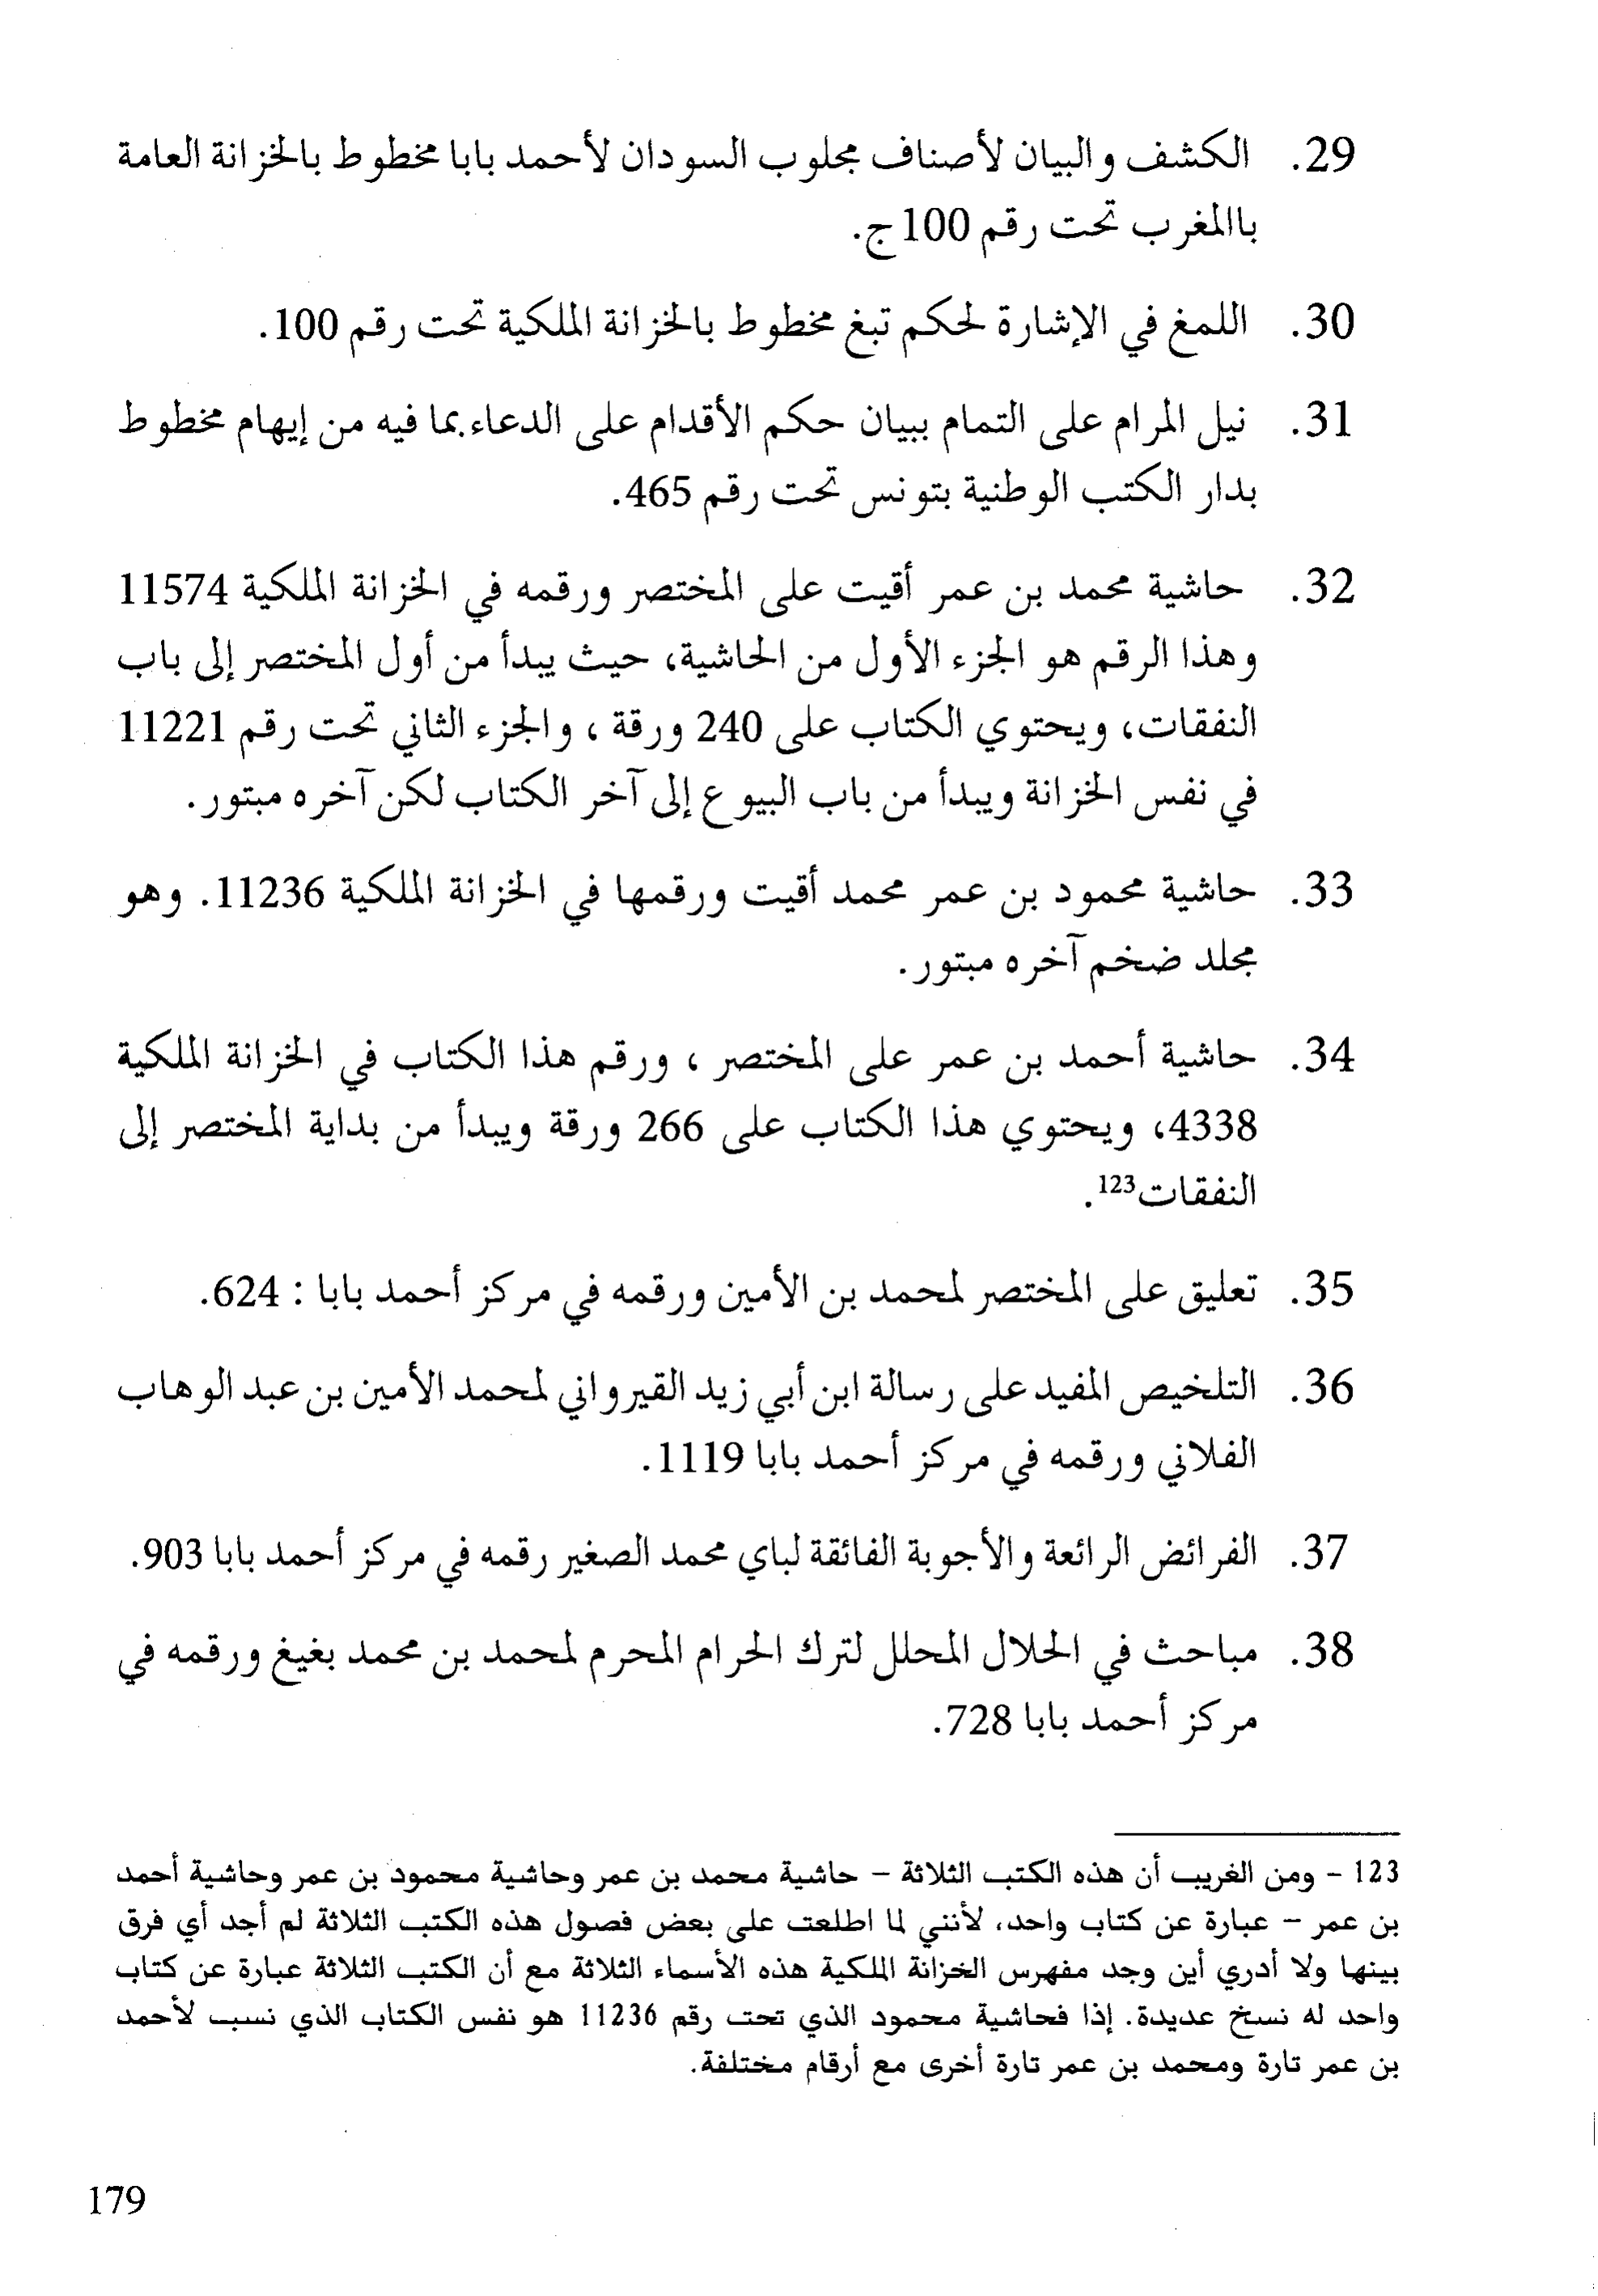 29. الكشف والبيان لأصناف مجلوب السودان لأحمد بابا مخطوط بالخزانة العامة
باالمغرب تحت رقم 100 ج.
30. اللمغ في الإشارة لحكم تبغ مخطوط بالخزانة الملكية تحت رقم 100.
31. نيل المرام على التمام ببيان حكم الأقدام على الدعاء.بما فيه من إيهام مخطوط
بدار الكتب الوطنية بتونس تحت رقم 465.
32. حاشية محمد بن عمر أقيت على المختصر ورقمه في الخزانة الملكية 11574
وهذا الرقم هو الجزء الأول من الحاشية، حيث يبدأ من أول المختصر إلى باب
النفقات، ويحتوي الكتاب على 240 ورقة ، والجزء الثاني تحت رقم 11221
في نفس الخزانة ويبدأ من باب البيوع إلى آخر الكتاب لكن آخره مبتور.
33. حاشية محمود بن عمر محمد أقيت ورقمها في الخزانة الملكية 11236. وهو
مجلد ضخم آخره مبتور.
34. حاشية أحمد بن عمر على المختصر ، ورقم هذا الكتاب في الخزانة الملكية
4338، ويحتوي هذا الكتاب على 266 ورقة ويبدأ من بداية المختصر إلى
النفقات123.
35. تعليق على المختصر لمحمد بن الأمين ورقمه في مركز أحمد بابا : 624.
36. التلخيص المفيد على رسالة ابن أبي زيد القيرواني لمحمد الأمين بن عبد الوهاب
الفلاني ورقمه في مركز أحمد بابا 1119.
37. الفرائض الرائعة والأجوبة الفائقة لباي محمد الصغير رقمه في مركز أحمد بابا 903.
38. مباحث في الحلال المحلل لترك الحرام المحرم لمحمد بن محمد بغيغ ورقمه في
مركز أحمد بابا 728.
123 - ومن الغريب أن هذه الكتب الثلاثة - حاشية محمد بن عمر وحاشية محمود بن عمر وحاشية أحمد
بن عمر - عبارة عن كتاب واحد، لأنني لما اطلعت على بعض فصول هذه الكتب الثلاثة لم أجد أي فرق
بينها ولا أدري أين وجد مفهرس الخزانة الملكية هذه الأسماء الثلاثة مع أن الكتب الثلاثة عبارة عن كتاب
واحد له نسخ عديدة. إذا فحاشية محمود الذي تحت رقم 11236 هو نفس الكتاب الذي نسب لأحمد
بن عمر تارة ومحمد بن عمر تارة أخرى مع أرقام مختلفة.
179